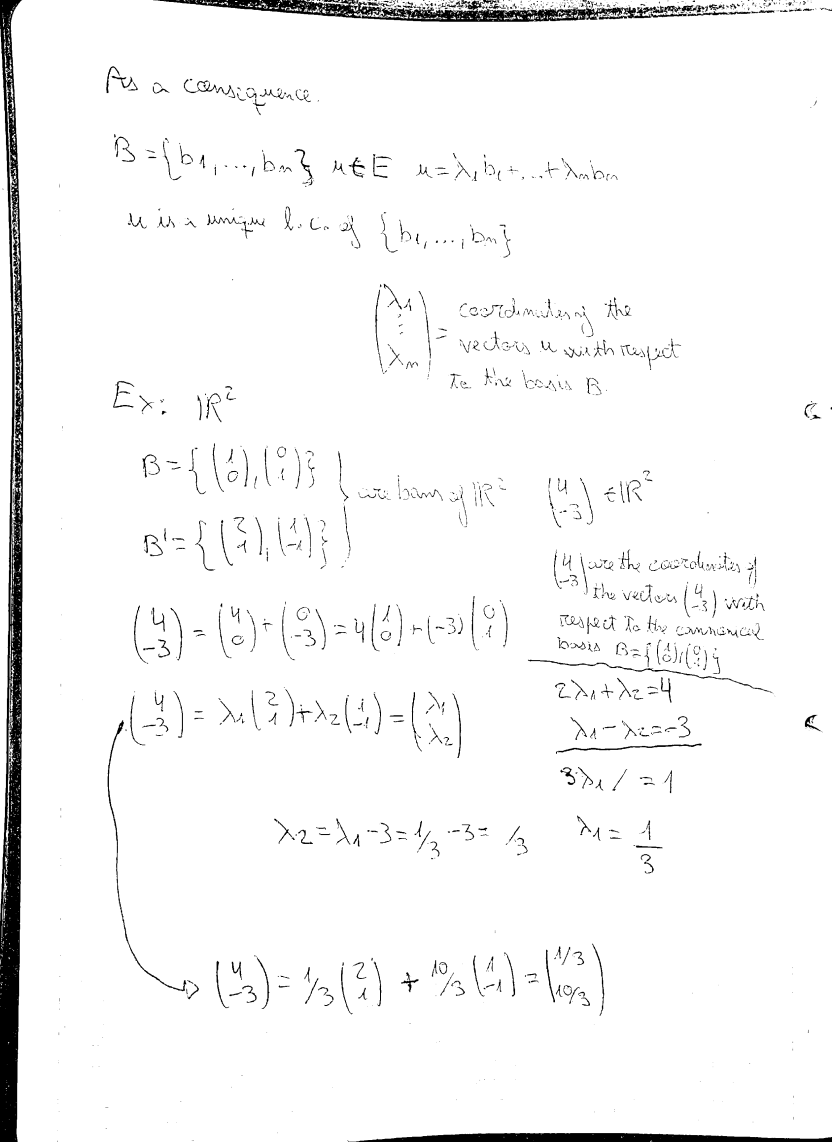 As a consequence.
B = {b1, ..., bn} u ∈ E u = λ1 b1 + ... + λn bn
u is a unique l.c. of {b1, ..., bn}
(λ1 ⋮ λn) = coordinates of the
vectors u with respect
to the basis B.
Ex: ℝ²
B = {(1 0), (0 1)}
B' = {(2 1), (1 -1)}
} are bases of ℝ² (4 -3) ∈ ℝ²
(4 -3) are the coordinates of
the vectors (4 -3) with
respect to the cannonical
basis B = {(1 0), (0 1)}
(4 -3) = (4 0) + (0 -3) = 4 (1 0) + (-3) (0 1)
(4 -3) = λ1 (2 1) + λ2 (1 -1) = (λ1 λ2)
2λ1 + λ2 = 4
λ1 - λ2 = -3
3λ1 / = 1
λ2 = λ1 - 3 = 1/3 - 3 = /3 λ1 = 1/3
(4 -3) = 1/3 (2 1) + 10/3 (1 -1) = (1/3 10/3)